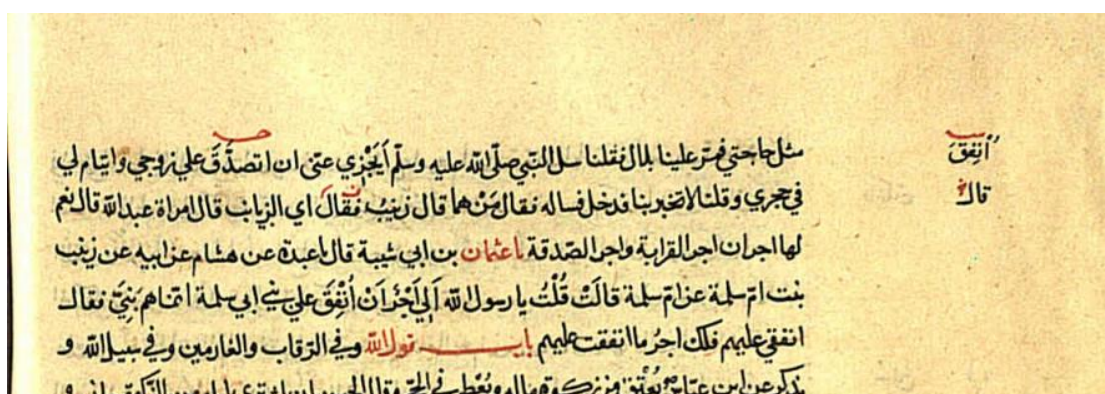 مثل حاجتي فمرّ علينا بلال فقلنا سل النبي صلّى الله عليه وسلّم أيَجْزِي عنّي ان اتصدَّقَ علي زوجي وايتام لي
في حجري وقلنا لا تخبر بنا فدخل فساله فقال مَنْ هما قال زينبُ فقال اي الزيانب قال امراة عبد الله قال نعم
لها اجران اجر القرابة واجر الصّدقة نا عثمان بن ابي شيبة قال نا عبدة عن هشام عن ابيه عن زينب
بنت امّ سلمة عن امّ سلمة قالَتْ قُلْتُ يا رسول الله ألي أجْرٌ أنْ أُنْفِقَ علي بني ابي سلمة انّما هم بَنيَّ فقال
انفقي عليهم فلك اجرُ ما انفقت عليهم باب قول الله وفي الرّقاب والغارمين وفي سبيل الله و
يذكر عن ابن عبّاس يُعْتِقُ من زكوة ماله ويُعْطِي في الحجّ وقال الحسن ان اشتري اباه من الزّكوة
أنفِقَ
قال